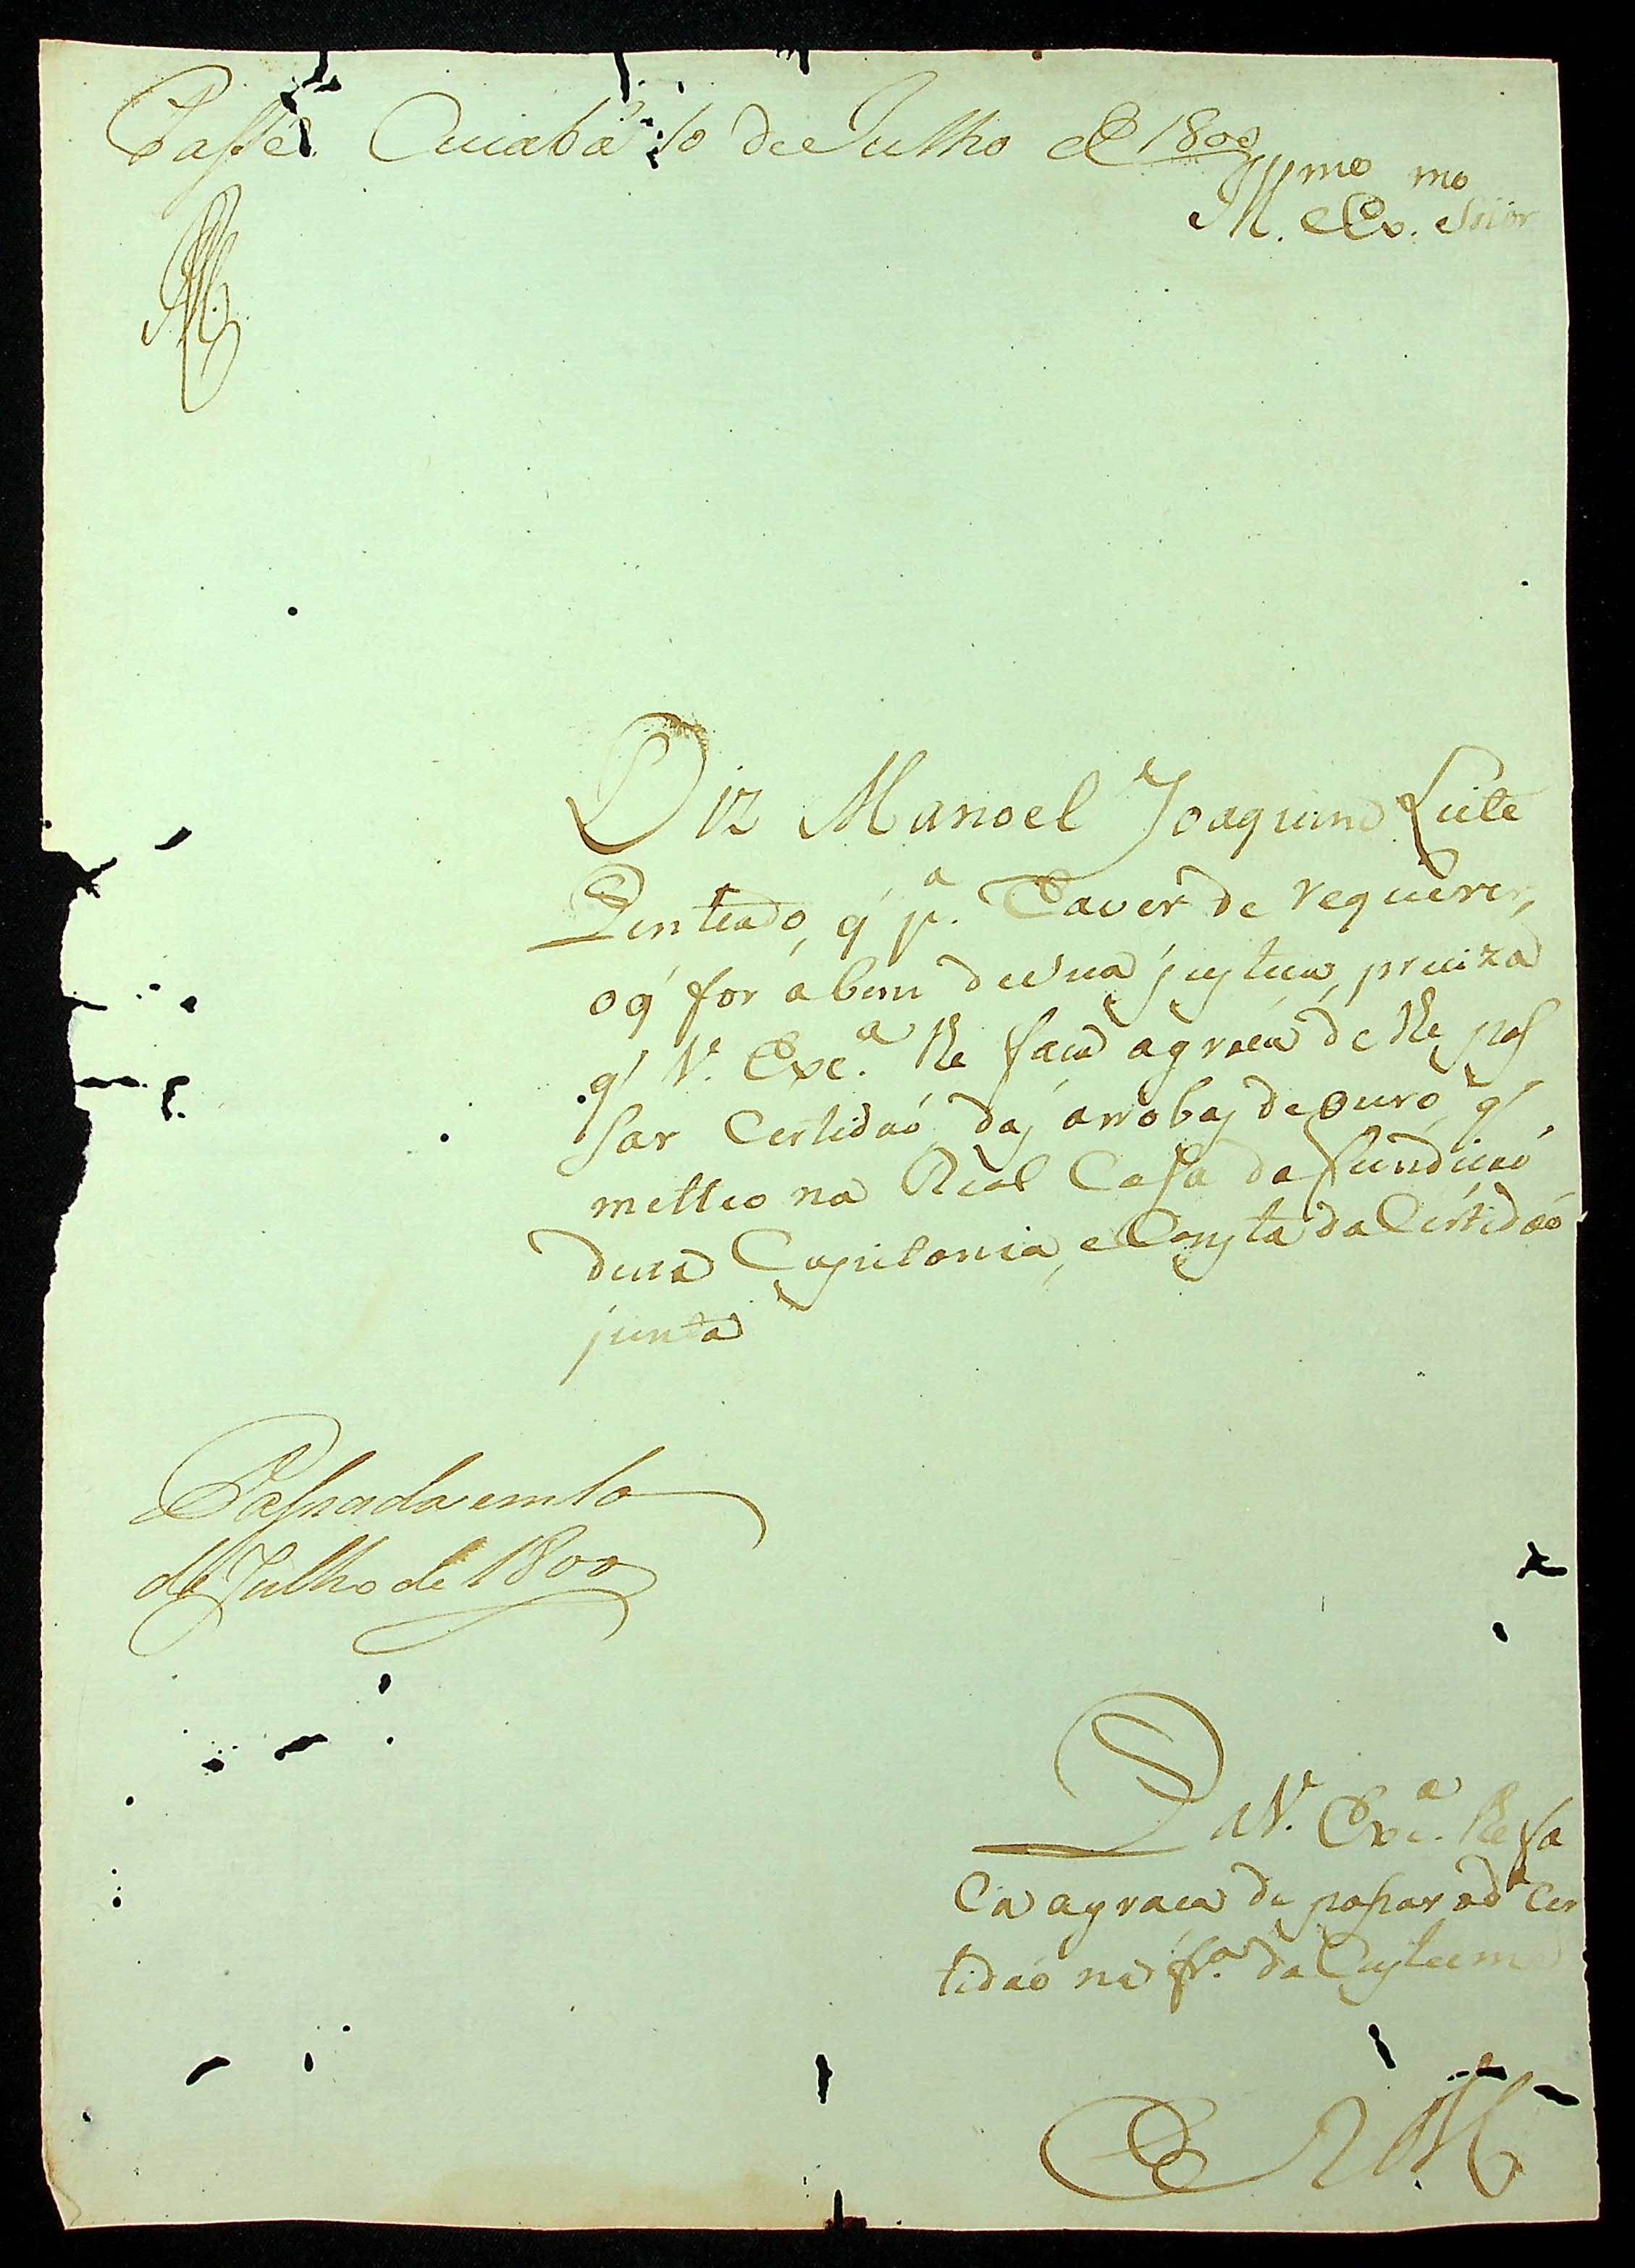 Passe. Cuiabá 10 de Julho de 1800
Illmo Exmo Snor
Diz Manoel Joaquim Leite
Penteado, q' pa. haver de requerer,
o q' for a bem de sua justica, preciza
q' V. Exc.a lhe faça a graça de lhe pas
sar Certidaõ das arrobas de Ouro, q'
metteo na Real Casa da fundicaõ
desta Capitania, e Consta da Certidaõ
junta
Passada em 10
de Julho de 1800
P. a V. Exc.a lhe fa
ca a graca de passar a d.a Cer
tidaõ na fr.a do Custume
E R M